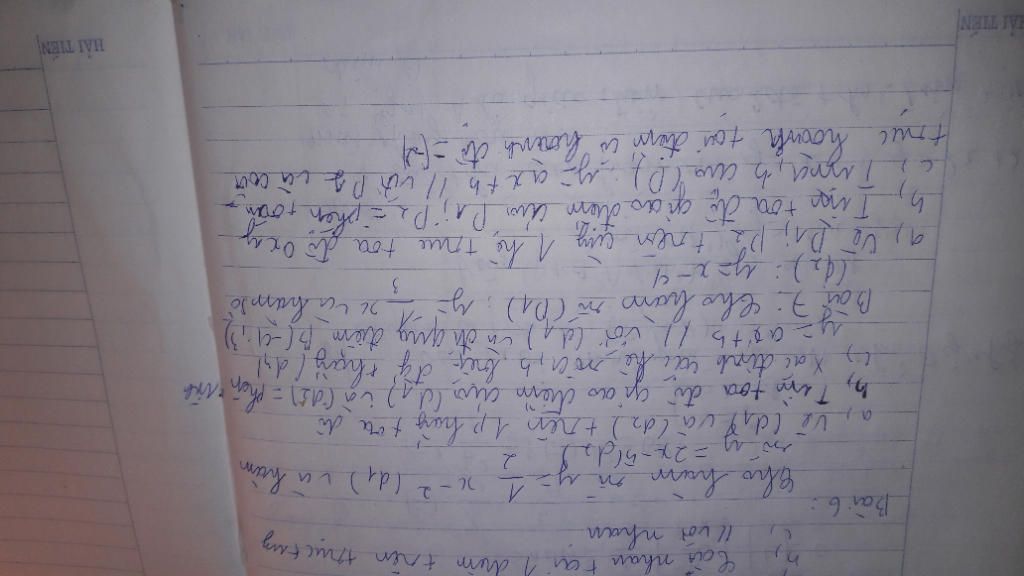 b, Cắt nhau tại 1 điểm trên trục tung
c, // với nhau
Bài 6:
Cho hàm số y = 1/2 x - 2 (d1) và hàm
số y = 2x - 5 (d2)
a, Vẽ (d1) và (d2) trên 1 phẳng tọa độ
b, Tìm tọa độ giao điểm của (d1) và (d2) = phép tính
c, Xác định các hệ số a, b biết đg thẳng (d3)
y = ax + b // với (d1) và đi qua điểm B(-4; 3)
Bài 7: Cho hàm số (D1): y = 1/3 x và hàm số
(d2): y = x - 4
a, Vẽ D1; D2 trên cùng 1 hệ trục tọa độ Oxy
b, Tìm tọa độ giao điểm của D1; D2 = phép toán
c, Tìm a, b của (D): y = ax + b // với D1 và cắt
trục hoành tại điểm có hoành độ = (-2)
HẢI TIẾN
HẢI TIẾN